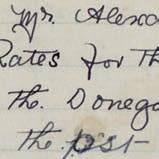 Mr. Alexa
Rates for th
the. Donega
the pst-